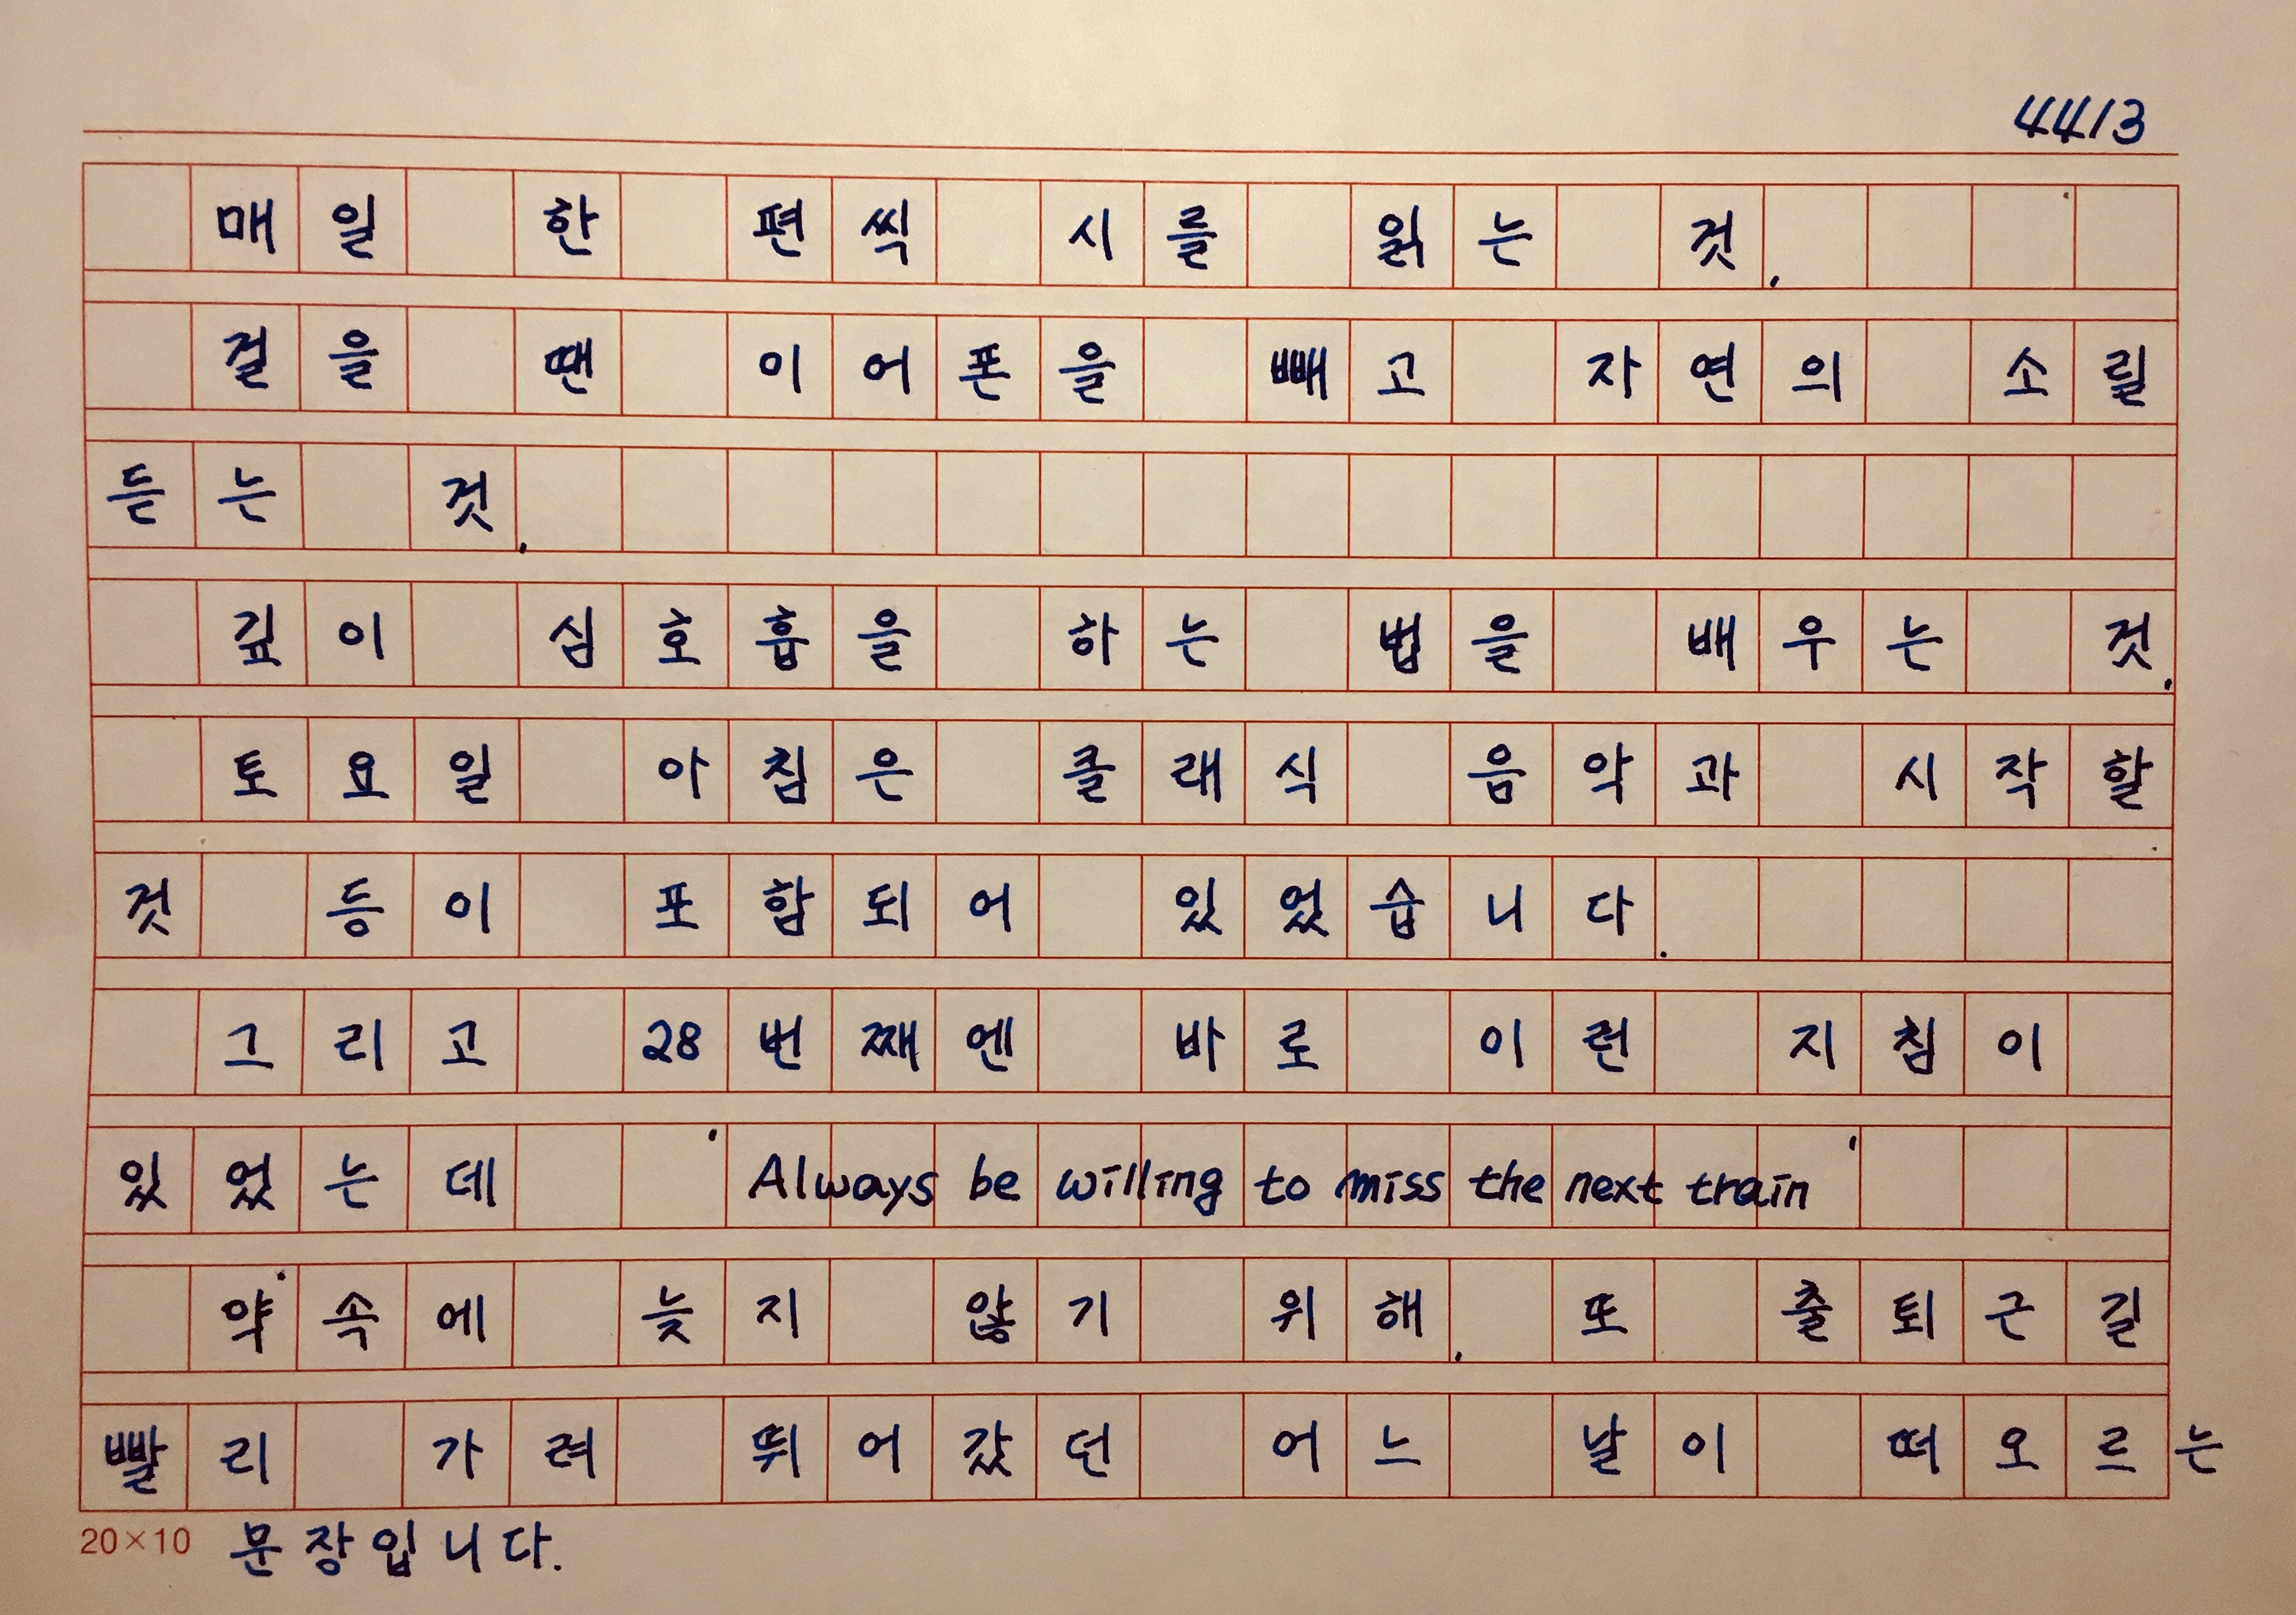 4413
매일 한 편씩 시를 읽는 것.
걸을 땐 이어폰을 빼고 자연의 소릴
듣는 것.
깊이 심호흡을 하는 법을 배우는 것.
토요일 아침은 클래식 음악과 시작할
것 등이 포함되어 있었습니다.
그리고 28번째엔 바로 이런 지침이
있었는데 'Always be willing to miss the next train'
약속에 늦지 않기 위해, 또 출퇴근길
빨리 가려 뛰어갔던 어느 날이 떠오르는
20×10 문장입니다.